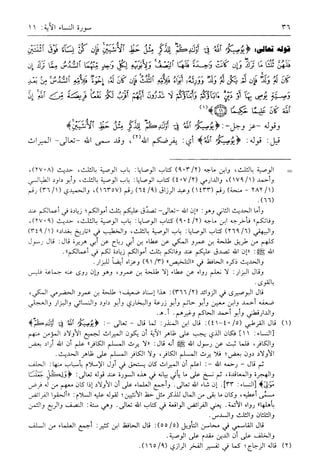 ٣٦ سورة النساء الآية: ١١
قوله تعالى: ﴿يُوصِيكُمُ اللَّهُ فِي أَوْلَادِكُمْ لِلذَّكَرِ مِثْلُ حَظِّ الْأُنثَيَيْنِ فَإِن كُنَّ نِسَاءً فَوْقَ اثْنَتَيْنِ
فَلَهُنَّ ثُلُثَا مَا تَرَكَ وَإِن كَانَتْ وَاحِدَةً فَلَهَا النِّصْفُ وَلِأَبَوَيْهِ لِكُلِّ وَاحِدٍ مِّنْهُمَا السُّدُسُ مِمَّا تَرَكَ إِن
كَانَ لَهُ وَلَدٌ فَإِن لَّمْ يَكُن لَّهُ وَلَدٌ وَوَرِثَهُ أَبَوَاهُ فَلِأُمِّهِ الثُّلُثُ فَإِن كَانَ لَهُ إِخْوَةٌ فَلِأُمِّهِ السُّدُسُ مِن بَعْدِ
وَصِيَّةٍ يُوصِي بِهَا أَوْ دَيْنٍ آبَاؤُكُمْ وَأَبْنَاؤُكُمْ لَا تَدْرُونَ أَيُّهُمْ أَقْرَبُ لَكُمْ نَفْعًا فَرِيضَةً مِّنَ اللَّهِ إِنَّ
اللَّهَ كَانَ عَلِيمًا حَكِيمًا﴾(١)
وقوله -عز وجل-: ﴿يُوصِيكُمُ اللَّهُ فِي أَوْلَادِكُمْ لِلذَّكَرِ مِثْلُ حَظِّ الْأُنثَيَيْنِ﴾
قيل: قوله: ﴿يُوصِيكُمُ اللَّهُ﴾ أي: يفرضكم الله(٢)، وقد سمى الله -تعالى- الميراث
= بالثلث، وابن ماجه (٩٠٣/٢) كتاب الوصايا: باب الوصية بالثلث، حديث (٢٧٠٨)،
وأحمد (١٧٩/١)، والدارمي (٤٠٧/٢) كتاب الوصايا: باب الوصية بالثلث، وأبو داود الطيالسي
(٢٨٢/١ - منحة) رقم (١٤٣٣) وعبد الرزاق (٦٤/٩) رقم (١٦٣٥٧)، والحميدي (٣٦/١) رقم
(٦٦).
وأما الحديث الثاني وهو: «إن الله -تعالى- تصدَّق عليكم بثلث أموالكم» زيادة في أعمالكم عند
وفاتكم» فأخرجه ابن ماجه (٩٠٤/٢) كتاب الوصايا: باب الوصية بالثلث، حديث (٢٧٠٩)،
والبيهقي (٢٦٩/٦) كتاب الوصايا: باب الوصية بالثلث، والخطيب في «تاريخ بغداد» (٣٤٩/١)
كلهم من طريق طلحة بن عمرو المكي عن عطاء بن أبي رباح عن أبي هريرة قال: قال رسول
الله ﷺ: «إن الله تصدق عليكم عند وفاتكم بثلث أموالكم زيادة لكم في أعمالكم».
وهذا الحديث ذكره الحافظ في «التلخيص» (٩١/٣) وعزاه أيضًا للبزار.
وقال البزار: لا نعلم رواه عن عطاء إلا طلحة بن عمرو، وهو وإن روى عنه جماعة فليس
بالقوي.
قال البوصيري في الزوائد (٣٦٦/٢): هذا إسناد ضعيف؛ طلحة بن عمرو الحضرمي المكي،
ضعفه أحمد وابن معين وأبو حاتم وأبو زرعة والبخاري وأبو داود والنسائي والبزار والعجلي
والدارقطني وأبو أحمد الحاكم وغيرهم. أ.هـ.
(١) قال القرطبي (٤٠/٥-٤١): قال ابن المنذر: لما قال -تعالى-: ﴿يُوصِيكُمُ اللَّهُ فِي أَوْلَادِكُمْ﴾
[النساء: ١١] فكان الذي يجب على ظاهر الآية أن يكون الميراث لجميع الأولاد المؤمن منهم
والكافر، فلما ثبت عن رسول الله ﷺ أنه قال: «لا يرث المسلم الكافر» علم أن الله أراد بعض
الأولاد دون بعض؛ فلا يرث المسلم الكافر، ولا الكافر المسلم على ظاهر الحديث.
ثم قال -رحمه الله-: اعلم أن الميراث كان يستحق في أول الإسلام بأسباب منها: الحلف
والهجرة والمعاقدة، ثم نسخ على ما يأتي بيانه في هذه السورة عند قوله تعالى: ﴿وَلِكُلٍّ جَعَلْنَا
مَوَالِيَ﴾ [النساء: ٣٣]. إن شاء الله تعالى. وأجمع العلماء على أن الأولاد إذا كان معهم من له فرض
مسمى أعطيه، وكان ما بقي من المال للذكر مثل حظ الأنثيين؛ لقوله عليه السلام: «ألحقوا الفرائض
بأهلها» رواه الأئمة. يعني الفرائض الواقعة في كتاب الله تعالى. وهي ستة: النصف والربع والثمن
والثلثان والثلث والسدس.
قال القاسمي في محاسن التأويل (٥٥/٥): قال الحافظ ابن كثير: أجمع العلماء من السلف
والخلف على أن الدين مقدم على الوصية.
(٢) قاله الزجاج؛ كما في تفسير الفخر الرازي (١٦٥/٩).